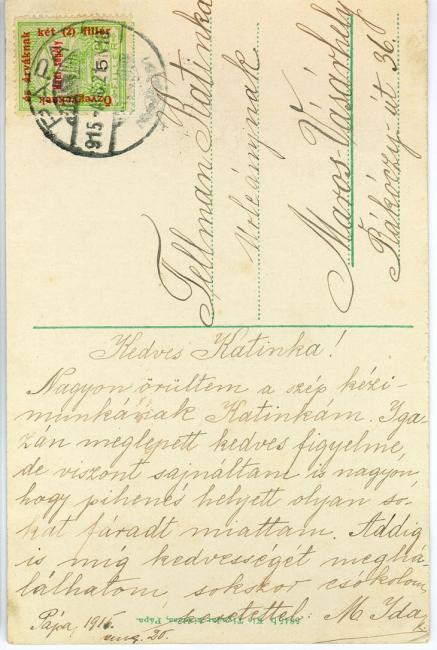 Özvegyeknek
és árváknak
két (2) fillér
915
Tellman Katinka
Maros-Vásárhely
Rákóczy-út 36.
Kedves Katinka!
Nagyon örültem a szép kézi-
munkának Katinkám. Iga-
zán meglepett kedves figyelme,
de viszont sajnáltam is nagyon,
hogy pihenés helyett olyan so-
kat fáradt miattam. Addig
is míg kedvességét meghá-
lálhatom sokszor csókolom
szeretettel: M. Ida
Pápa, 1915.
aug. 20.